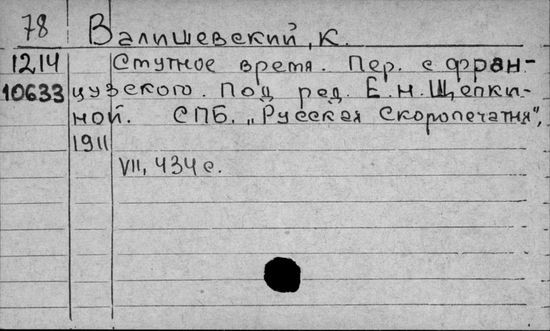 78 Валишевский, К.
1214 Смутное время. Пер. с фран-
10633 цузского. Под ред. Е.Н.Щепки-
ной. СПБ. „Русская Скоропечатня",
1911
VII, 434 с.